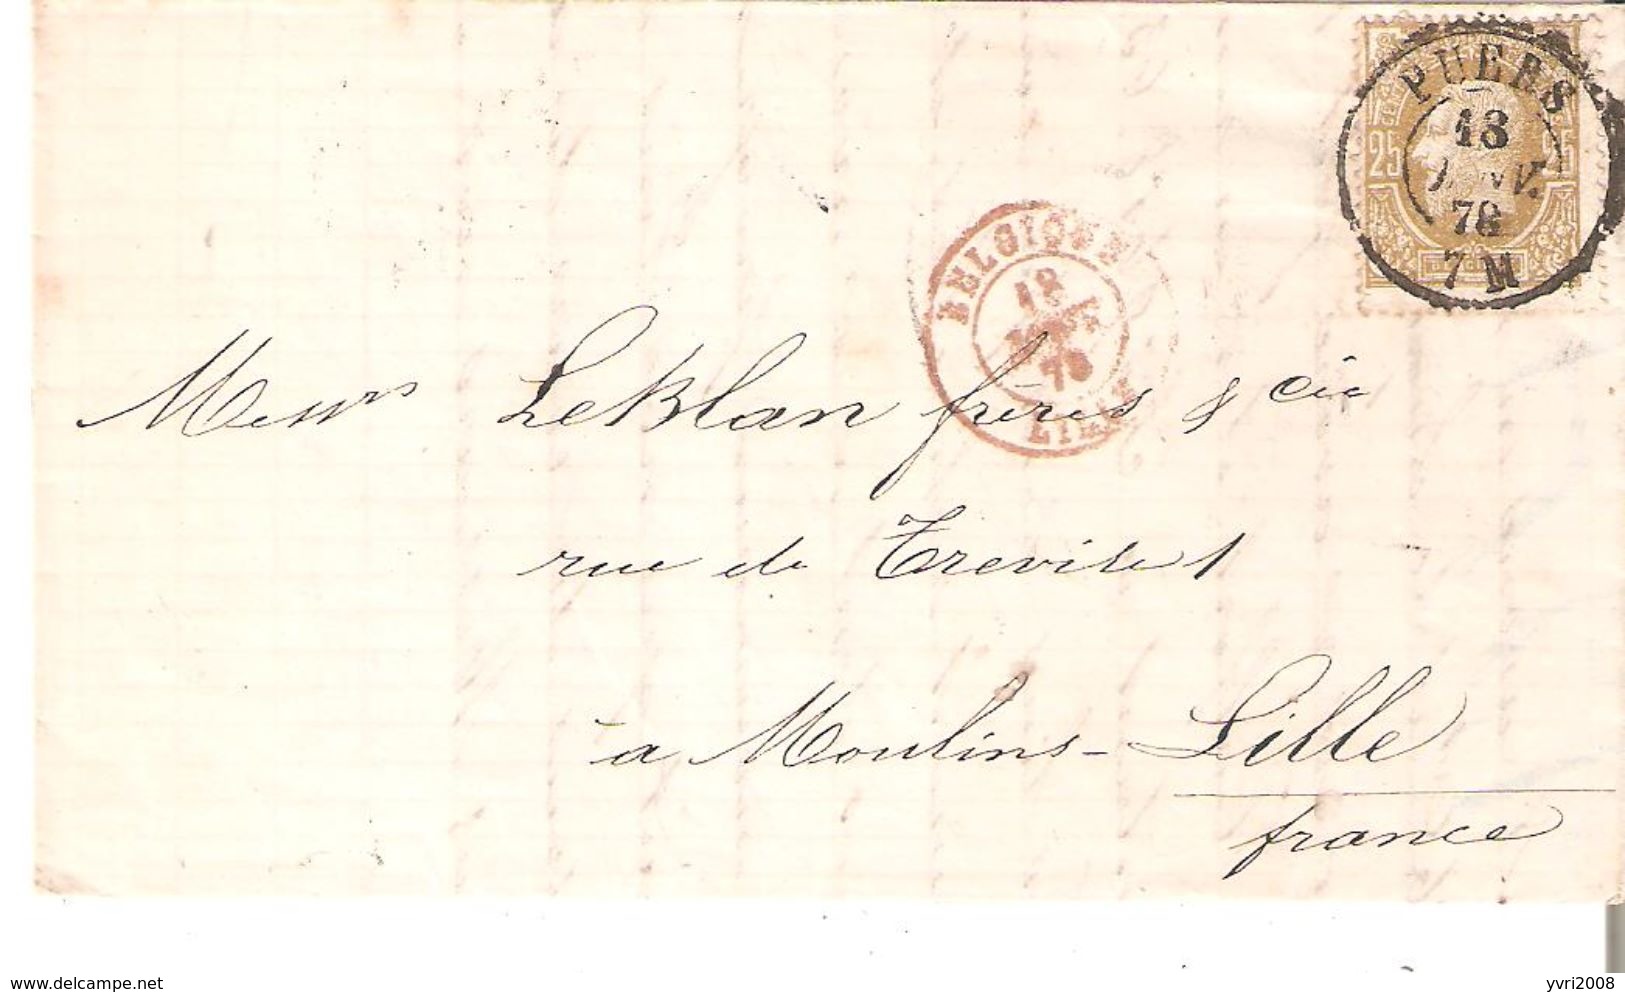 PUERS
18
JANV.
78
7 M
25 25
BELGIQUE
18
JANV
78
LILLE
Messrs LeBlan frères & cie
rue de Trevise 1
à Moulins-Lille
france
www.delcampe.net
yvri2008